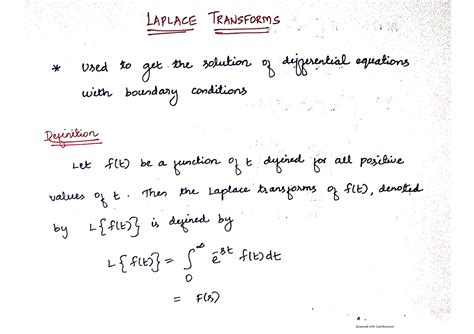 LAPLACE TRANSFORMS
* Used to get the solution of differential equations
with boundary conditions
Definition
Let f(t) be a function of t defined for all positive
values of t. Then the Laplace transforms of f(t), denoted
by L{f(t)} is defined by
L{f(t)} = ∫₀^∞ e^-st f(t) dt
= F(s)
Scanned with CamScanner